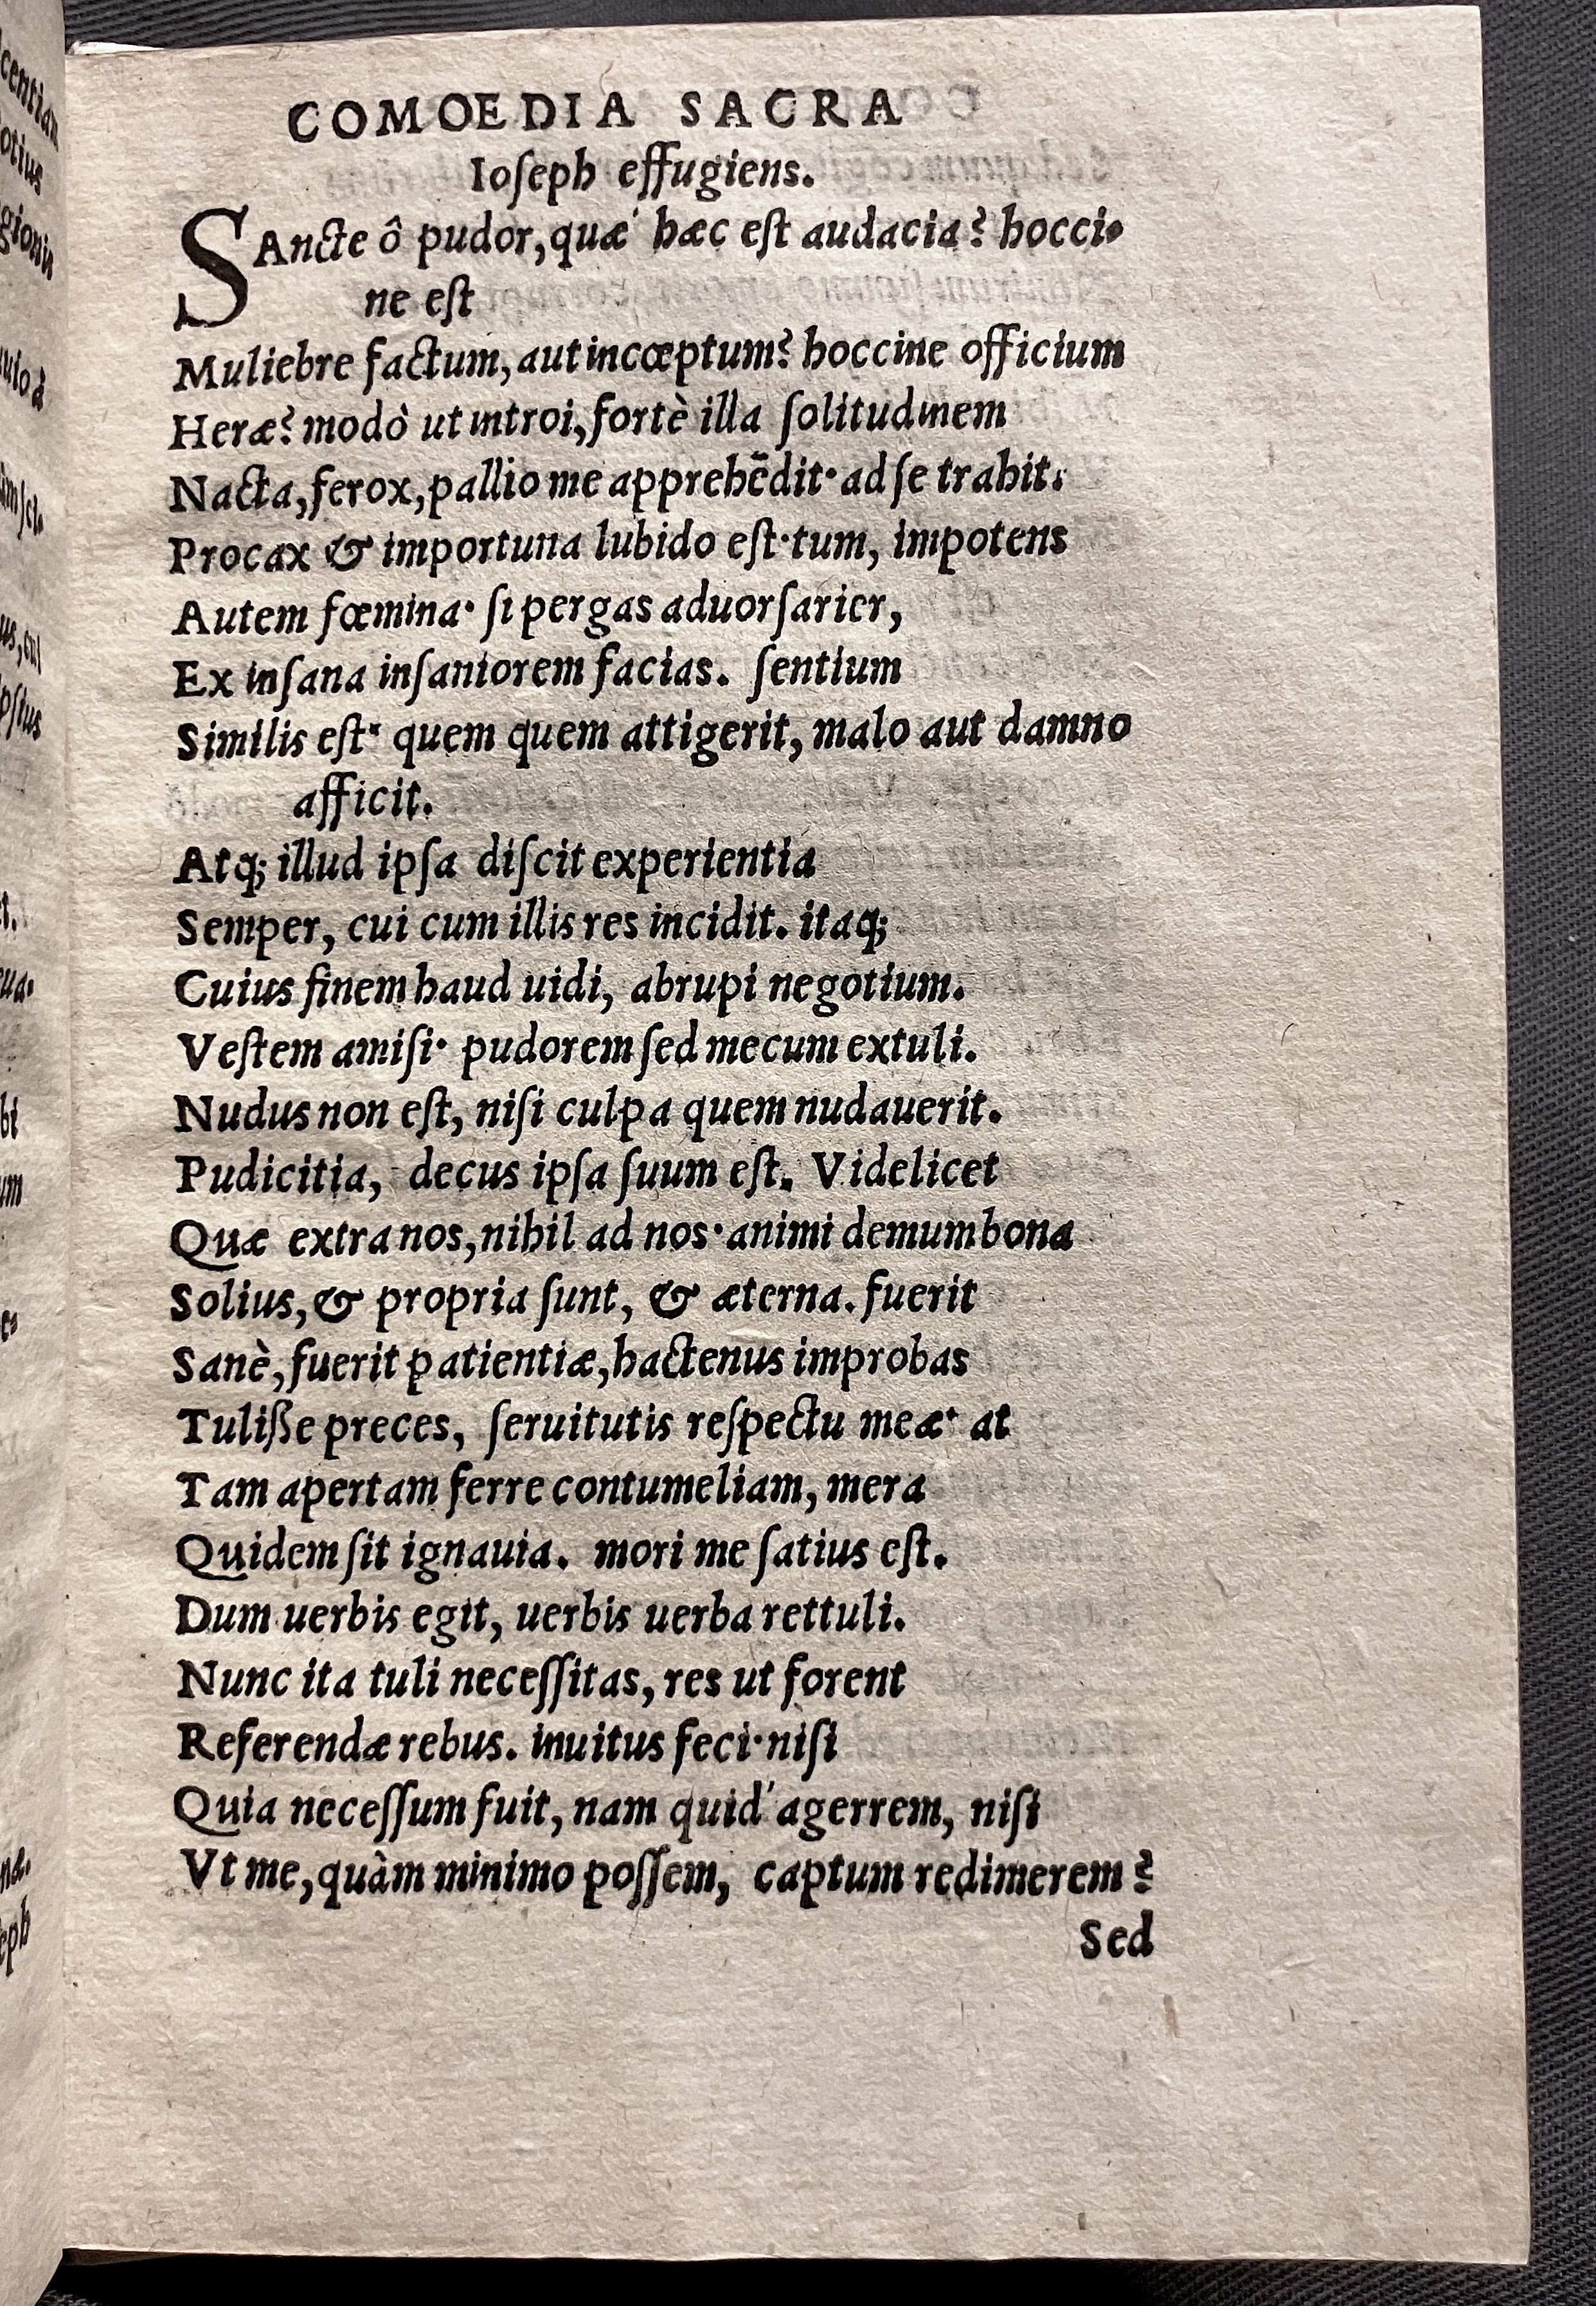 COMOEDIA SACRA
Ioſeph effugiens.
SAncte ô pudor, quæ' hæc eſt audacia? hocci-
ne eſt
Muliebre factum, aut incœptum? hoccine officium
Heræ? modò ut introi, fortè illa ſolitudinem
Nacta, ferox, pallio me apprehēdit· ad ſe trahit:
Procax & importuna lubido eſt· tum, impotens
Autem fœmina· ſi pergas aduorſarier,
Ex inſana inſaniorem facias. ſentium
Similis eſt· quem quem attigerit, malo aut damno
afficit.
Atq; illud ipſa diſcit experientia
Semper, cui cum illis res incidit. itaq;
Cuius finem haud uidi, abrupi negotium.
Veſtem amiſi· pudorem ſed mecum extuli.
Nudus non eſt, niſi culpa quem nudauerit.
Pudicitia, decus ipſa ſuum eſt. Videlicet
Quæ extra nos, nihil ad nos· animi demum bona
Solius, & propria ſunt, & æterna. fuerit
Sanè, fuerit patientiæ, hactenus improbas
Tuliße preces, ſeruitutis reſpectu meæ· at
Tam apertam ferre contumeliam, mera
Quidem ſit ignauia. mori me ſatius eſt.
Dum uerbis egit, uerbis uerba rettuli.
Nunc ita tuli neceſſitas, res ut forent
Referendæ rebus. inuitus feci· niſi
Quia neceſſum fuit, nam quid' agerrem, niſi
Vt me, quàm minimo poſſem, captum redimerem?
Sed